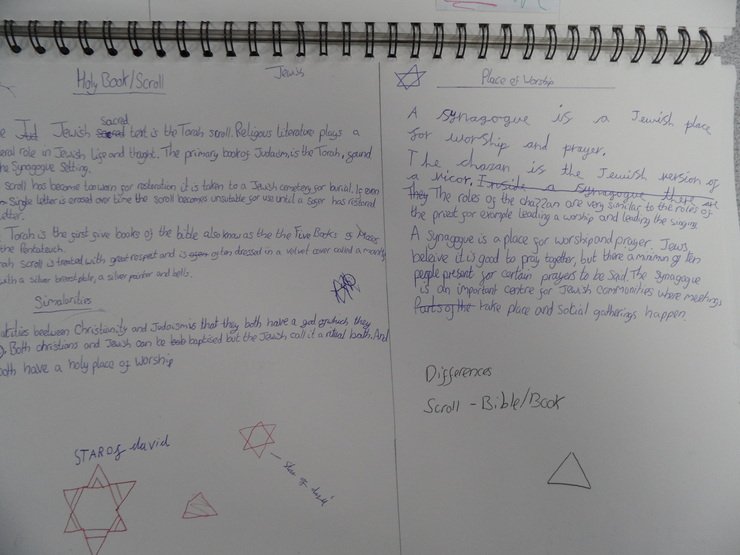 Holy Book/Scroll
Jewish
Jewish sacred text is the Torah scroll. Religous literature plays a
role in Jewish lige and thought. The primary book of Judaism, is the Torah, gound
the Synagogue Setting.
scroll has become too worn for restoration it is taken to a Jewish cemetery for burial. Ig even
Single letter is erased over time the scroll becomes unsuitable for use until a soger has restored
Torah is the girst give books of the bible also know as the the Five Books of Moses
the Pentateuch.
scroll is treated with great respect and is ogten dressed in a velvet cover called a
with a silver breastplate, a silver pointer and bells.
Simalarities
between Christianity and Judaism is that they both have a god of which they
Both christians and Jewish can be baptised but the Jewish call it a ritual bath. And
both have a holy place of worship
STAR of david
Star of david
Place of Worship
A synagogue is a Jewish place
for worship and prayer.
The chazan is the Jewish version of
a vicor. Inside a synagogue there are
They The roles of the chazzan are very similar to the roles of
the priest for example leading a worship and leading the singing
A synagogue is a place for worship and prayer. Jews,
beleive it is good to pray together, but there a minimum of ten
people present for certain prayers to be said. The synagogue
is an important centre for Jewish communities where meetings
Parts of the take place and social gatherings happen
Differences
Scroll - Bible/Book